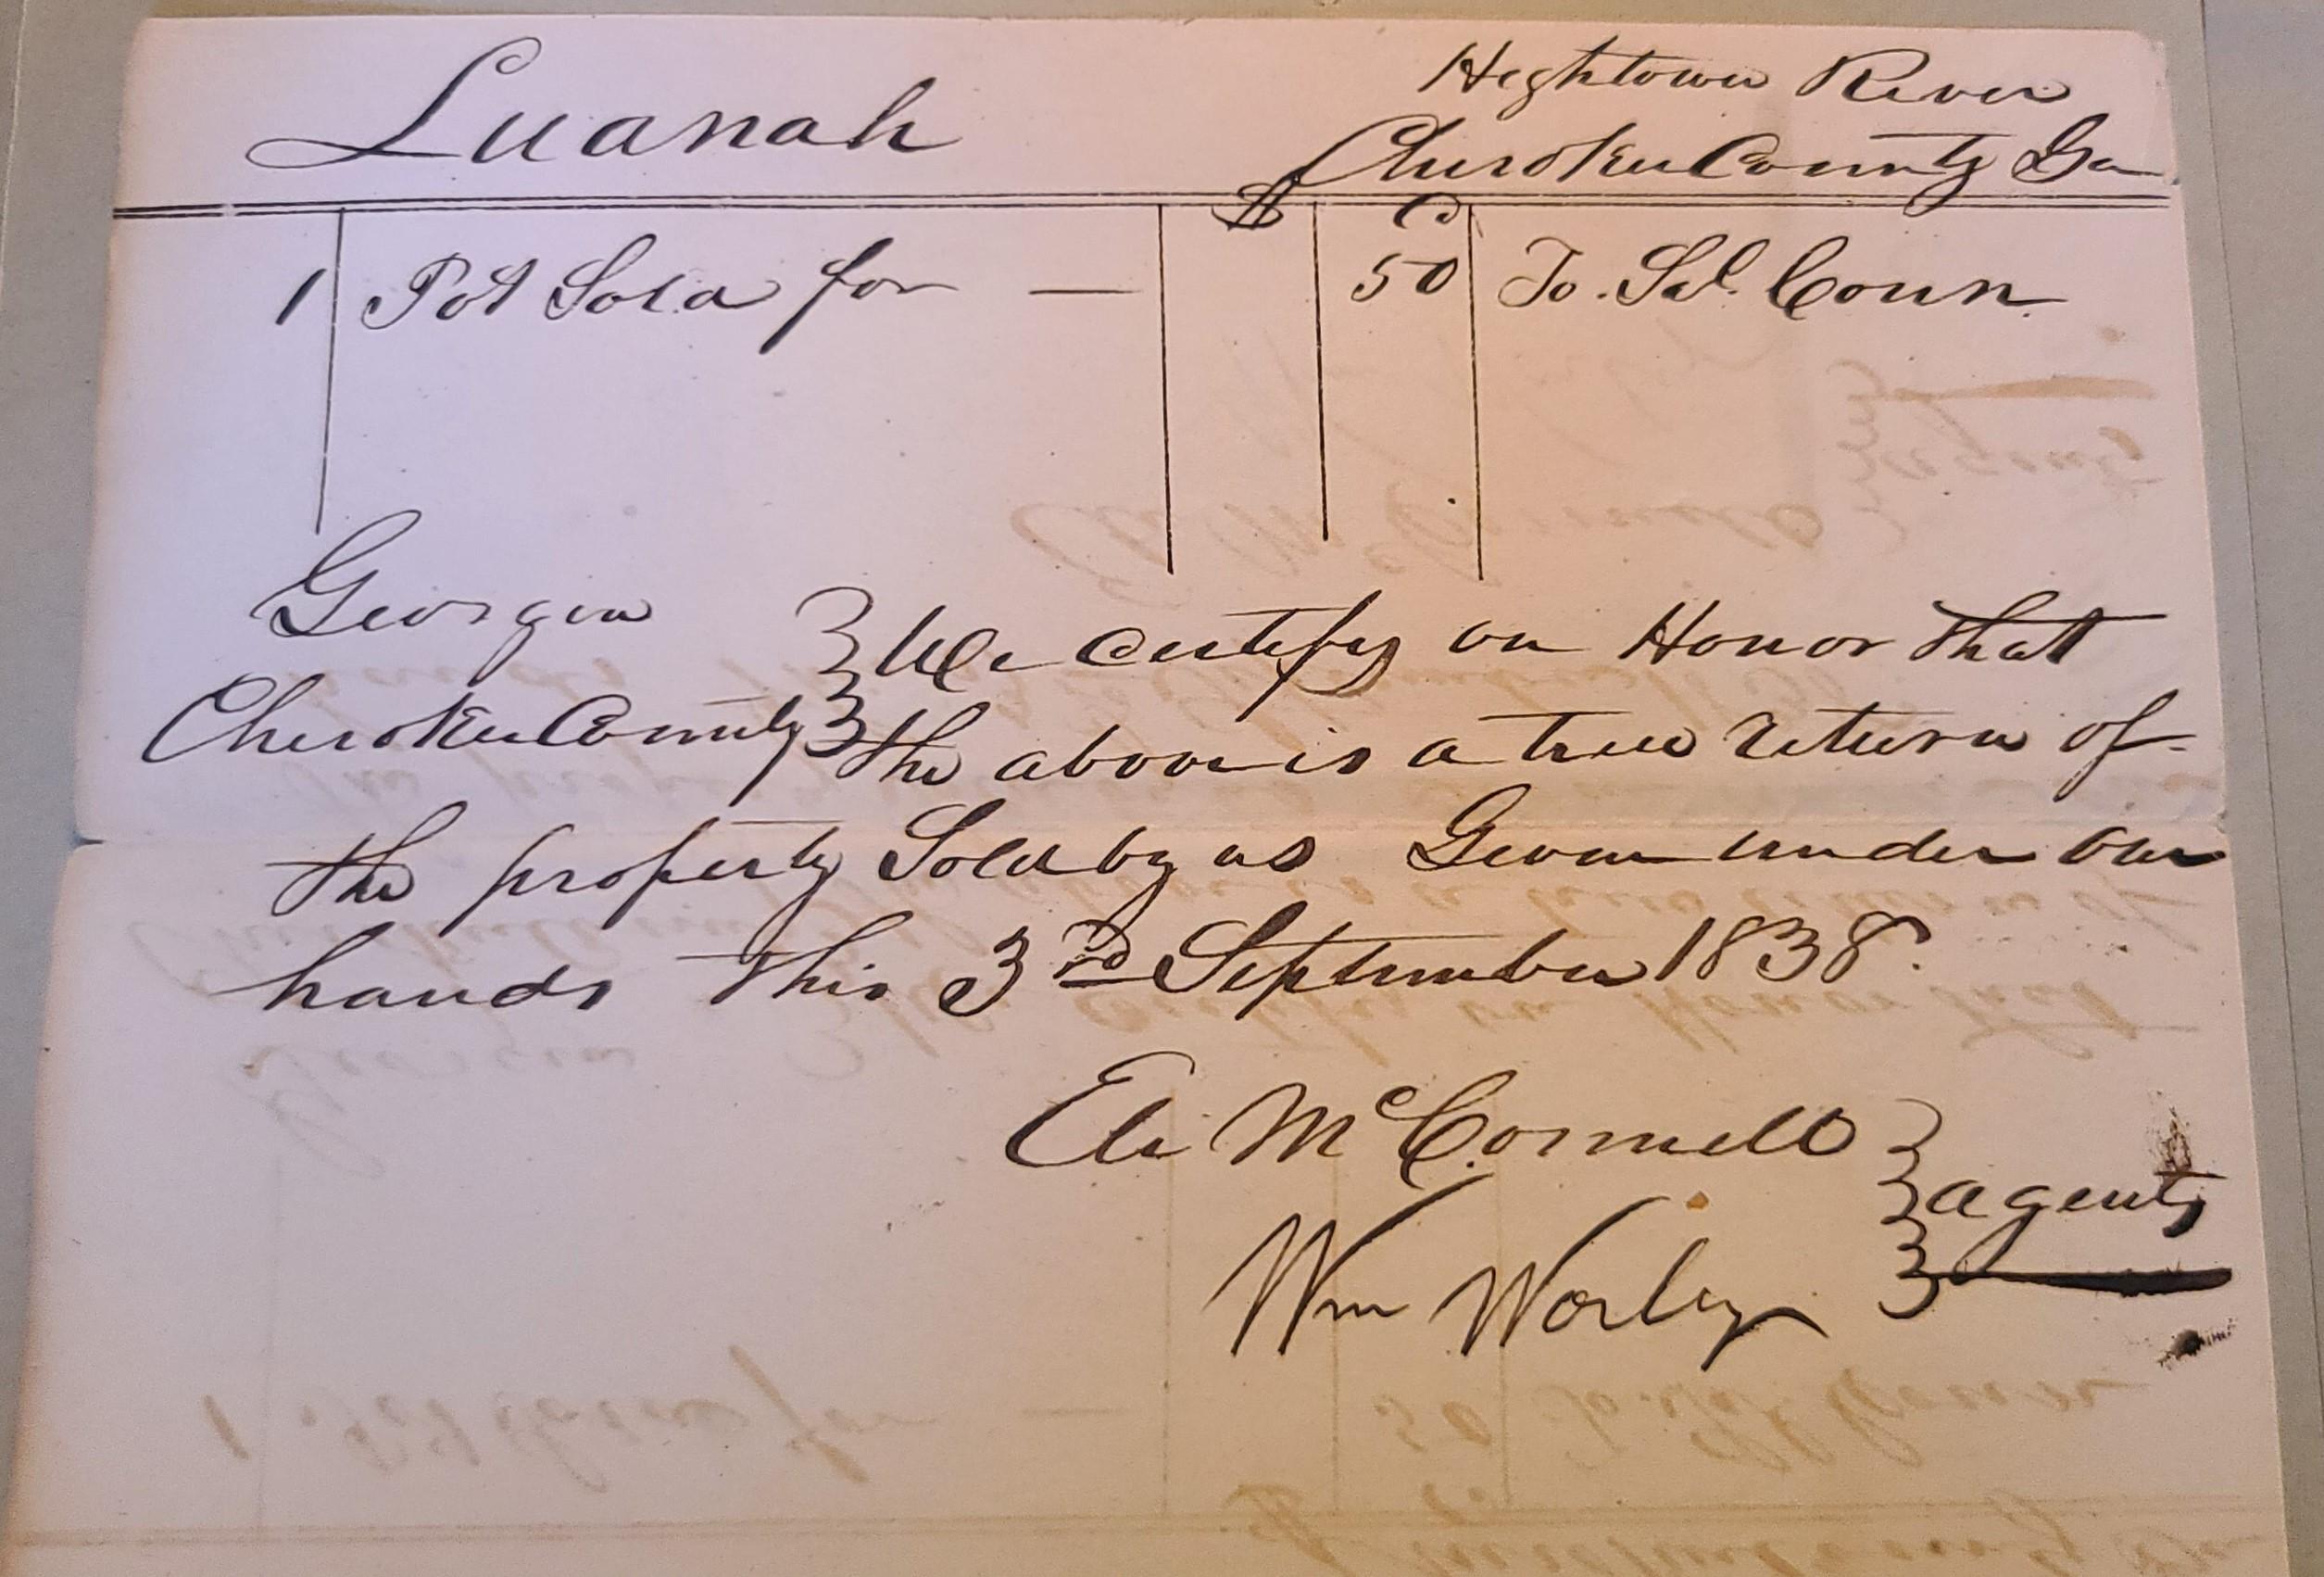 Luanah
Hightown River
Cherokee County Ga
$ C
1 Pot Sold for — 50 To. Sol. Coun.
Georgia
Cherokee County
We certify on Honor that
the above is a true return of
the property Sold by us Given under our
hands this 3rd September 1838.
Eli McConnell
agents
Wm Worley